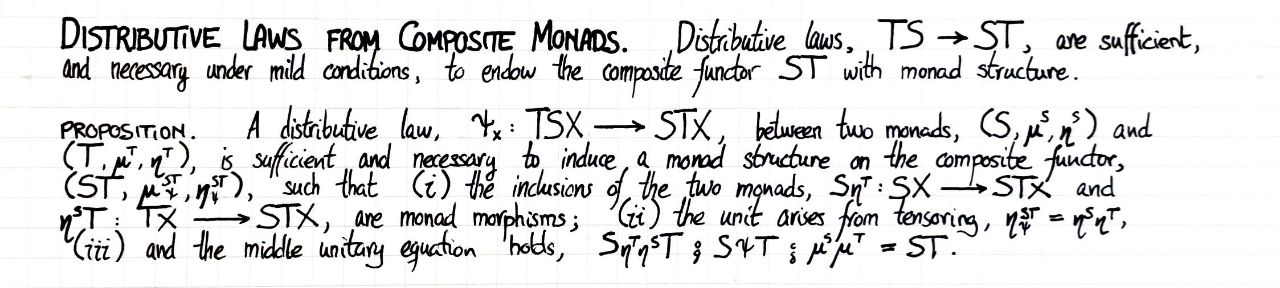 DISTRIBUTIVE LAWS FROM COMPOSITE MONADS. Distributive laws, TS → ST, are sufficient,
and necessary under mild conditions, to endow the composite functor ST with monad structure.
PROPOSITION. A distributive law, ψₓ: TSX ⟶ STX, between two monads, (S, μˢ, ηˢ) and
(T, μᵀ, ηᵀ), is sufficient and necessary to induce a monad structure on the composite functor,
(ST, μ^ST_ψ, η^ST_ψ), such that (i) the inclusions of the two monads, Sηᵀ: SX ⟶ STX and
ηˢT: TX ⟶ STX, are monad morphisms; (ii) the unit arises from tensoring, η^ST_ψ = ηˢηᵀ,
(iii) and the middle unitary equation holds, SηᵀηˢT ⨟ SψT ⨟ μˢμᵀ = ST.